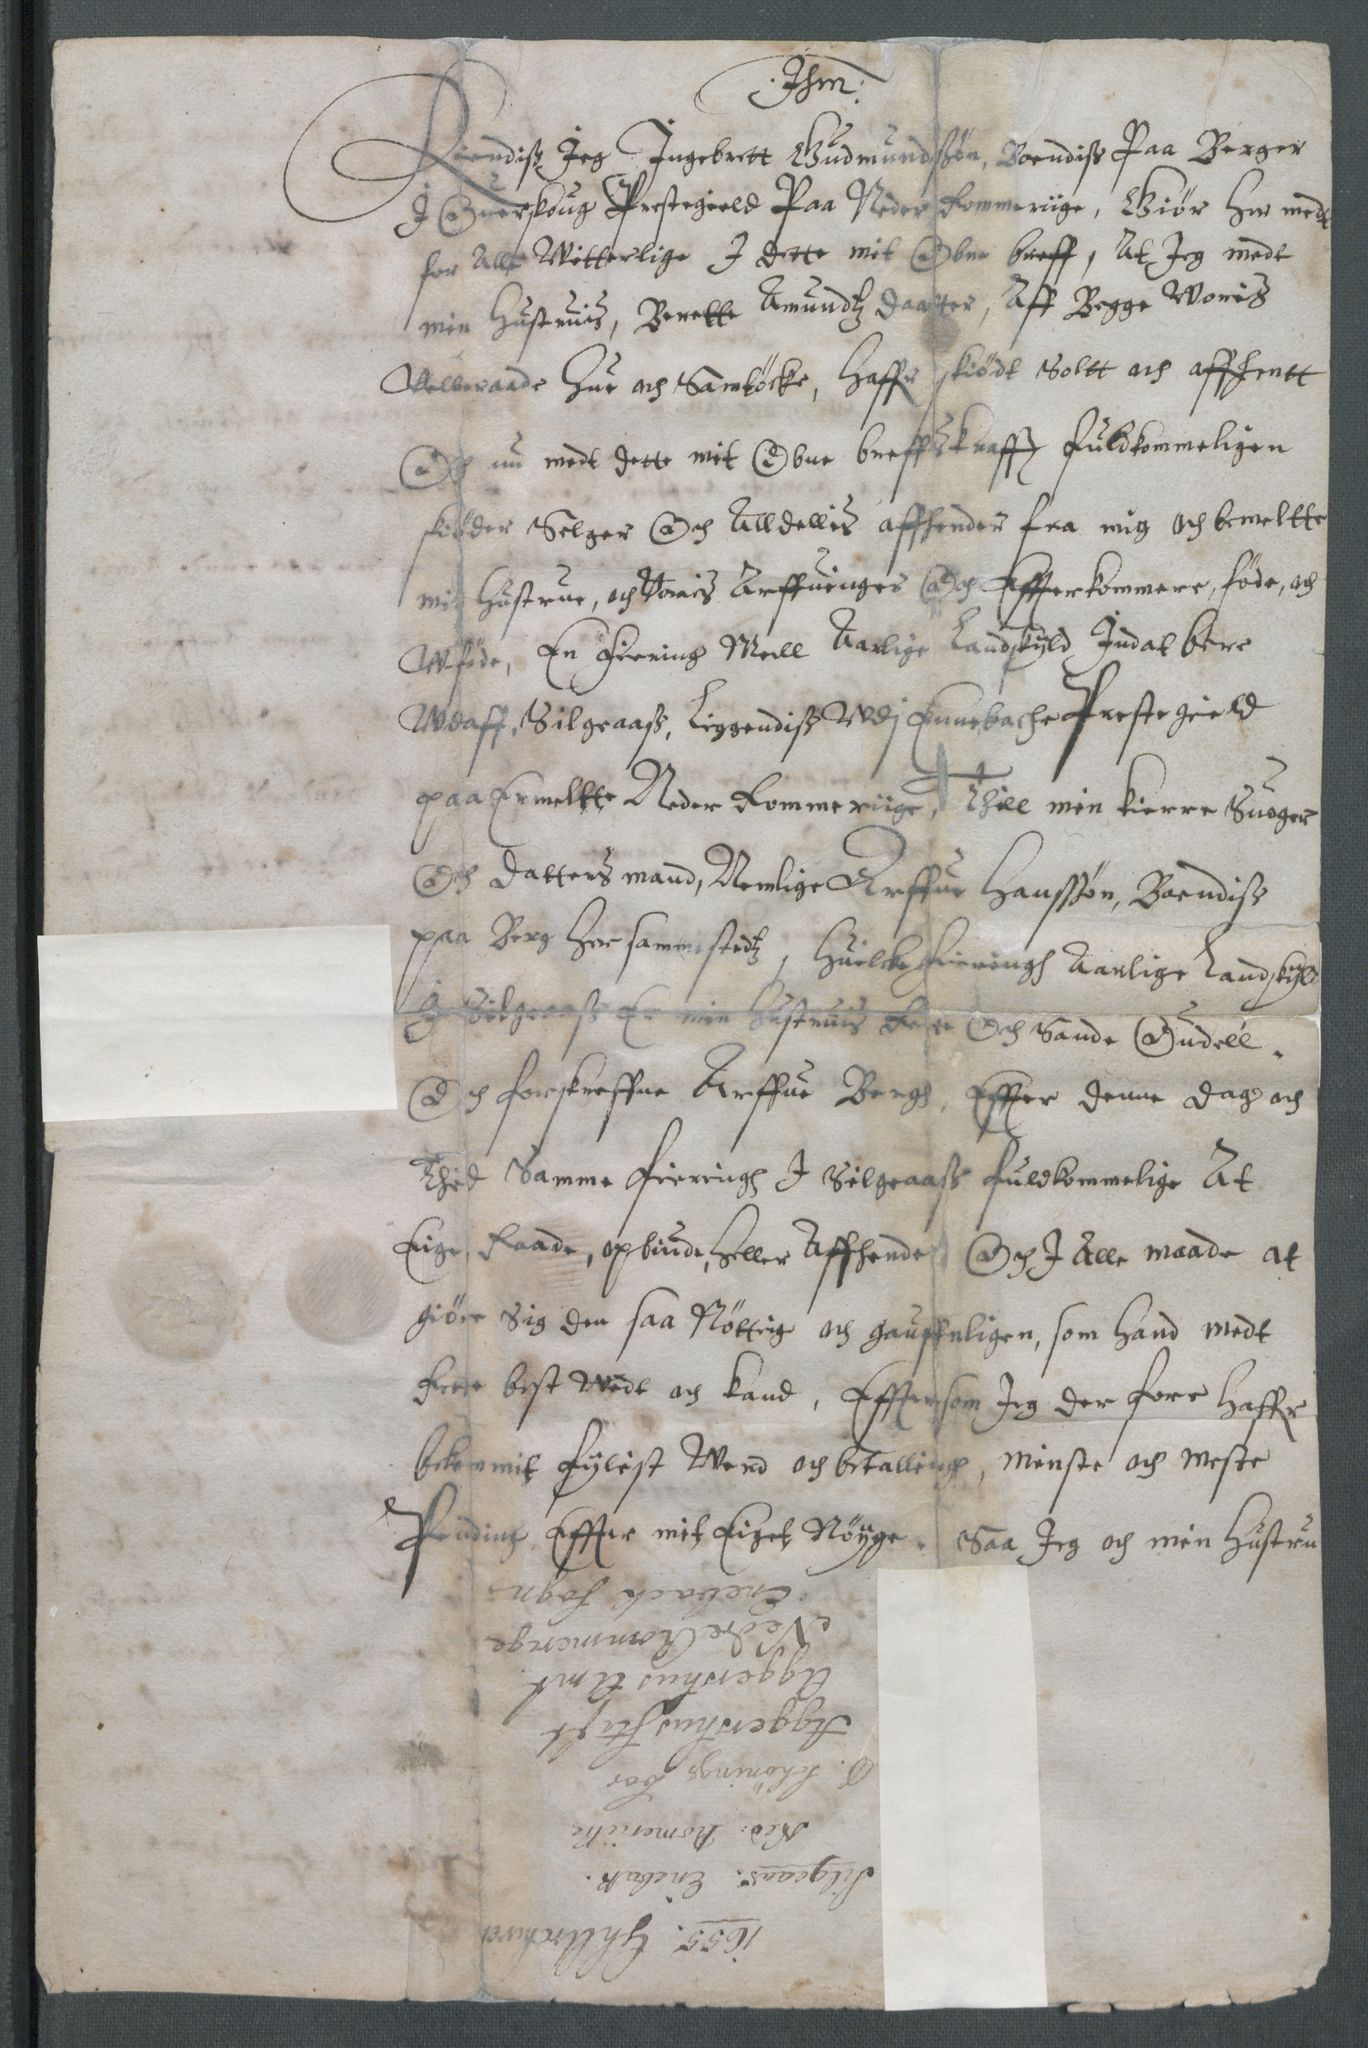 Jhm:
Kiendiss Jeg Ingebrett Gudmundssøn, Boendiss Paa Berger
J Ourskoug Prestegield Paa Neder Rommeriige, Giør her medt
for Alle Witterlige J dette mit Obne breff, At Jeg medt
min Hustruis, Berette Amundtz daatter, Aff Begge Woris
Velberaade Hue och Samtöcke, Haffr skiødt Soltt och affhentt
Och nu medt dette mit Obne breffs krafft fuldkommeligen
skiøder Selger Och Alldellis affhender fra mig och bemeltte
min Hustrue, och Voris Arffuinger Och Effterkommere, føde, och
Wføde, En Fiering Meell Aarlige Landskyld Jndat bere
Wdaff, Silgraass, Liggendiss Wdj Ennebache Prestegield
paa Ermeltte Neder Rommeriige, Thill min kierre Suoger
Och Datters mand, Nemlige Arffue Hanssøn, Boendiss
paa Berg her sammestedtz, Huilcke fieringh Aarlige Landskyld
J Silgraass Er min Hustruis Rette Och Sande Oudell.
Och forskreffne Arffue Bergh, Effter denne dag och
Thid Samme fieringh J Silgraass fuldkommelige At
Eige Raade, opbiude, Heller Affhende Och J Alle maade at
giøre sig den saa Nøttig och gauffnligen, som Hand medt
Rette best Wedt och kand, Efftersom Jeg der fore Haffr
bekommit fylist Werd och betallingh, minste och meste
Pending Effter mit Eiget Nöyge. Saa Jeg och min Hustru
Enebach sogn
Nedre Rommerige
Aggershus Amt
Aggershus stift
G. Schönings
Ned: Romerike
Silgaas. Enebak.
1655.